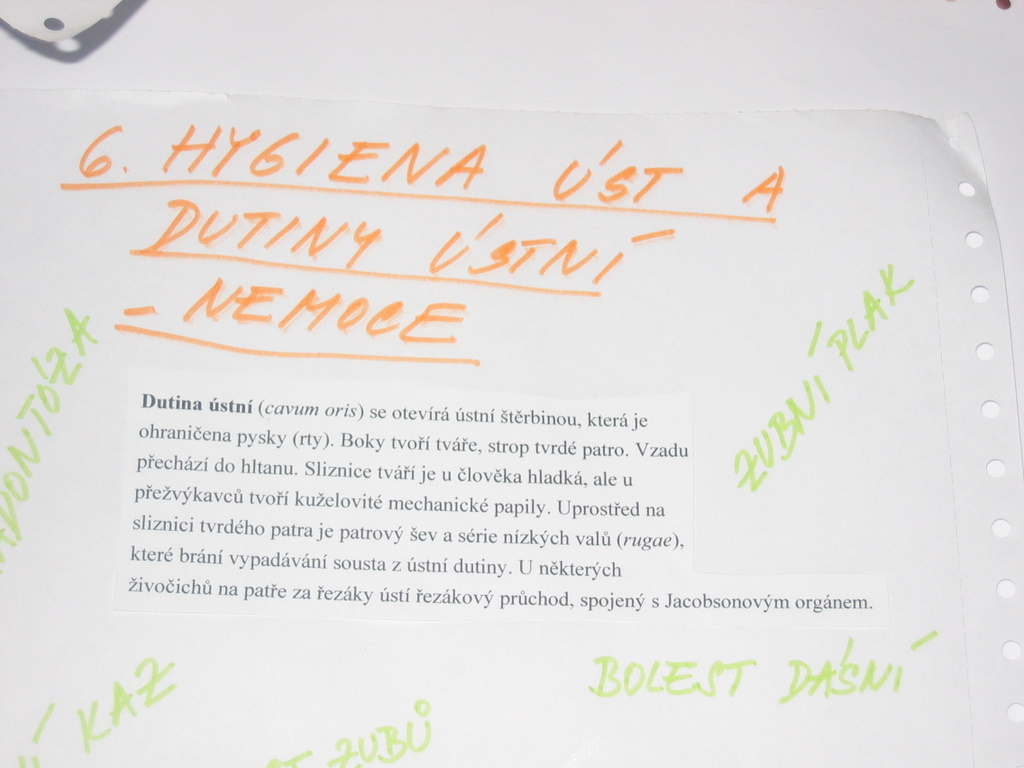 6. HYGIENA ÚST A
DUTINY ÚSTNÍ
- NEMOCE
ZUBNÍ PLAK
Dutina ústní (cavum oris) se otevírá ústní štěrbinou, která je
ohraničena pysky (rty). Boky tvoří tváře, strop tvrdé patro. Vzadu
přechází do hltanu. Sliznice tváří je u člověka hladká, ale u
přežvýkavců tvoří kuželovité mechanické papily. Uprostřed na
sliznici tvrdého patra je patrový šev a série nízkých valů (rugae),
které brání vypadávání sousta z ústní dutiny. U některých
živočichů na patře za řezáky ústí řezákový průchod, spojený s Jacobsonovým orgánem.
BOLEST DÁSNÍ
KAZ
ZUBŮ